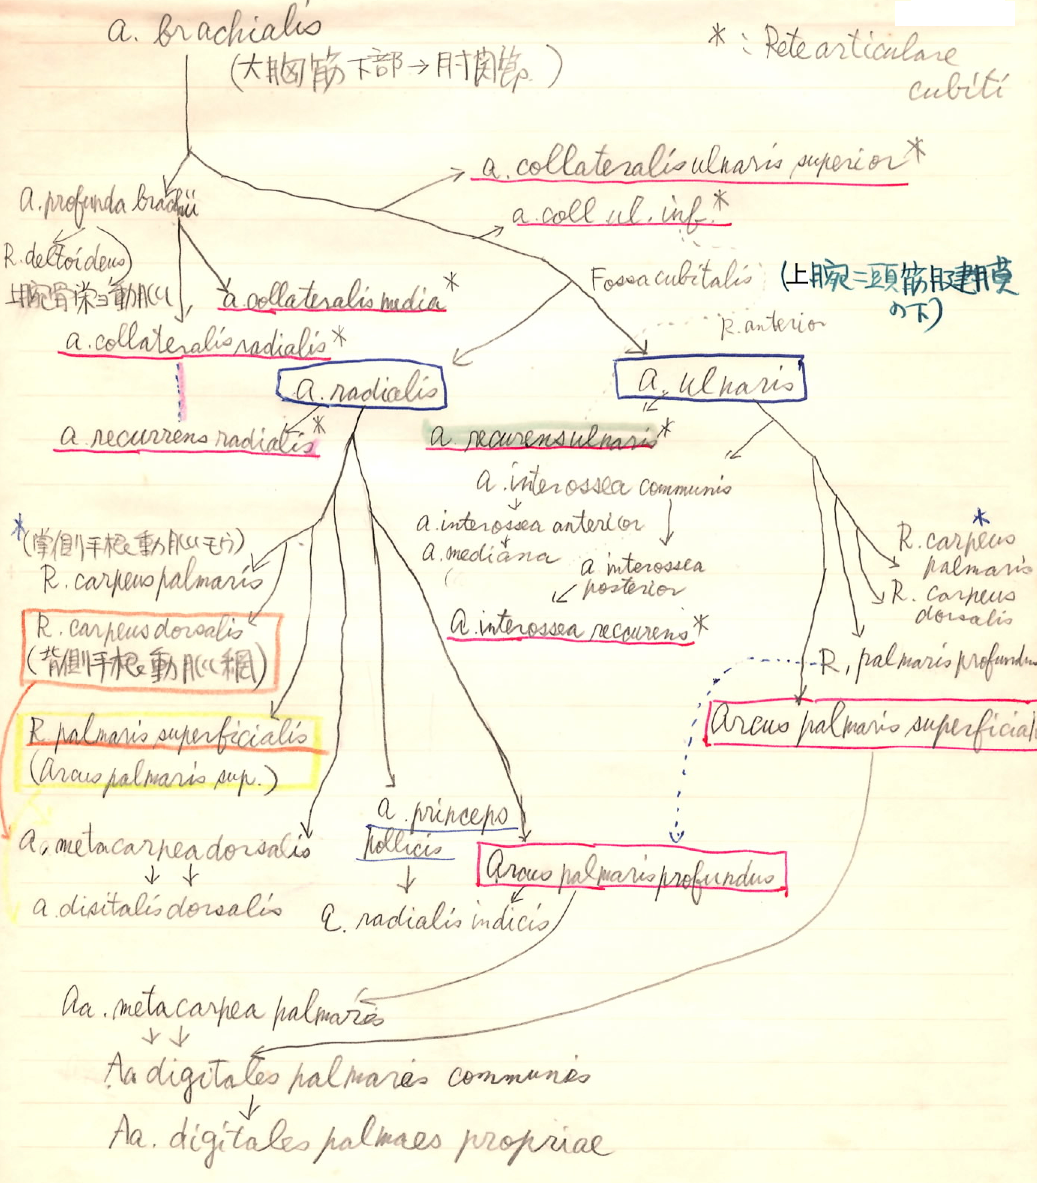 a. brachialis
(大胸筋下部→肘関節)
* : Rete articulare
cubiti
a. collateralis ulnaris superior*
a. coll. ul. inf.*
a. profunda brachii
R. deltoideus
上腕骨栄養動脈
a. collateralis media*
a. collateralis radialis*
Fossa cubitalis
(上腕二頭筋腱膜
の下)
R. anterior
a. radialis
a. ulnaris
a. recurrens radialis*
a. recurens ulnaris*
a. interossea communis
a. interossea anterior
a. mediana
a interossea
posterior
a. interossea recurens*
*(掌側手根動脈モウ)
R. carpeus palmaris
R. carpeus dorsalis
(背側手根動脈網)
R. palmaris superficialis
(Arcus palmaris sup.)
*
R. carpeus
palmaris
R. carpeus
dorsalis
R, palmaris profundus
Arcus palmaris superficial
a, metacarpea dorsalis
a. disitalis dorsalis
a. princeps
pollicis
a. radialis indicis
Arcus palmaris profundus
Aa. metacarpea palmares
Aa digitales palmares communes
Aa. digitales palmaes propriae